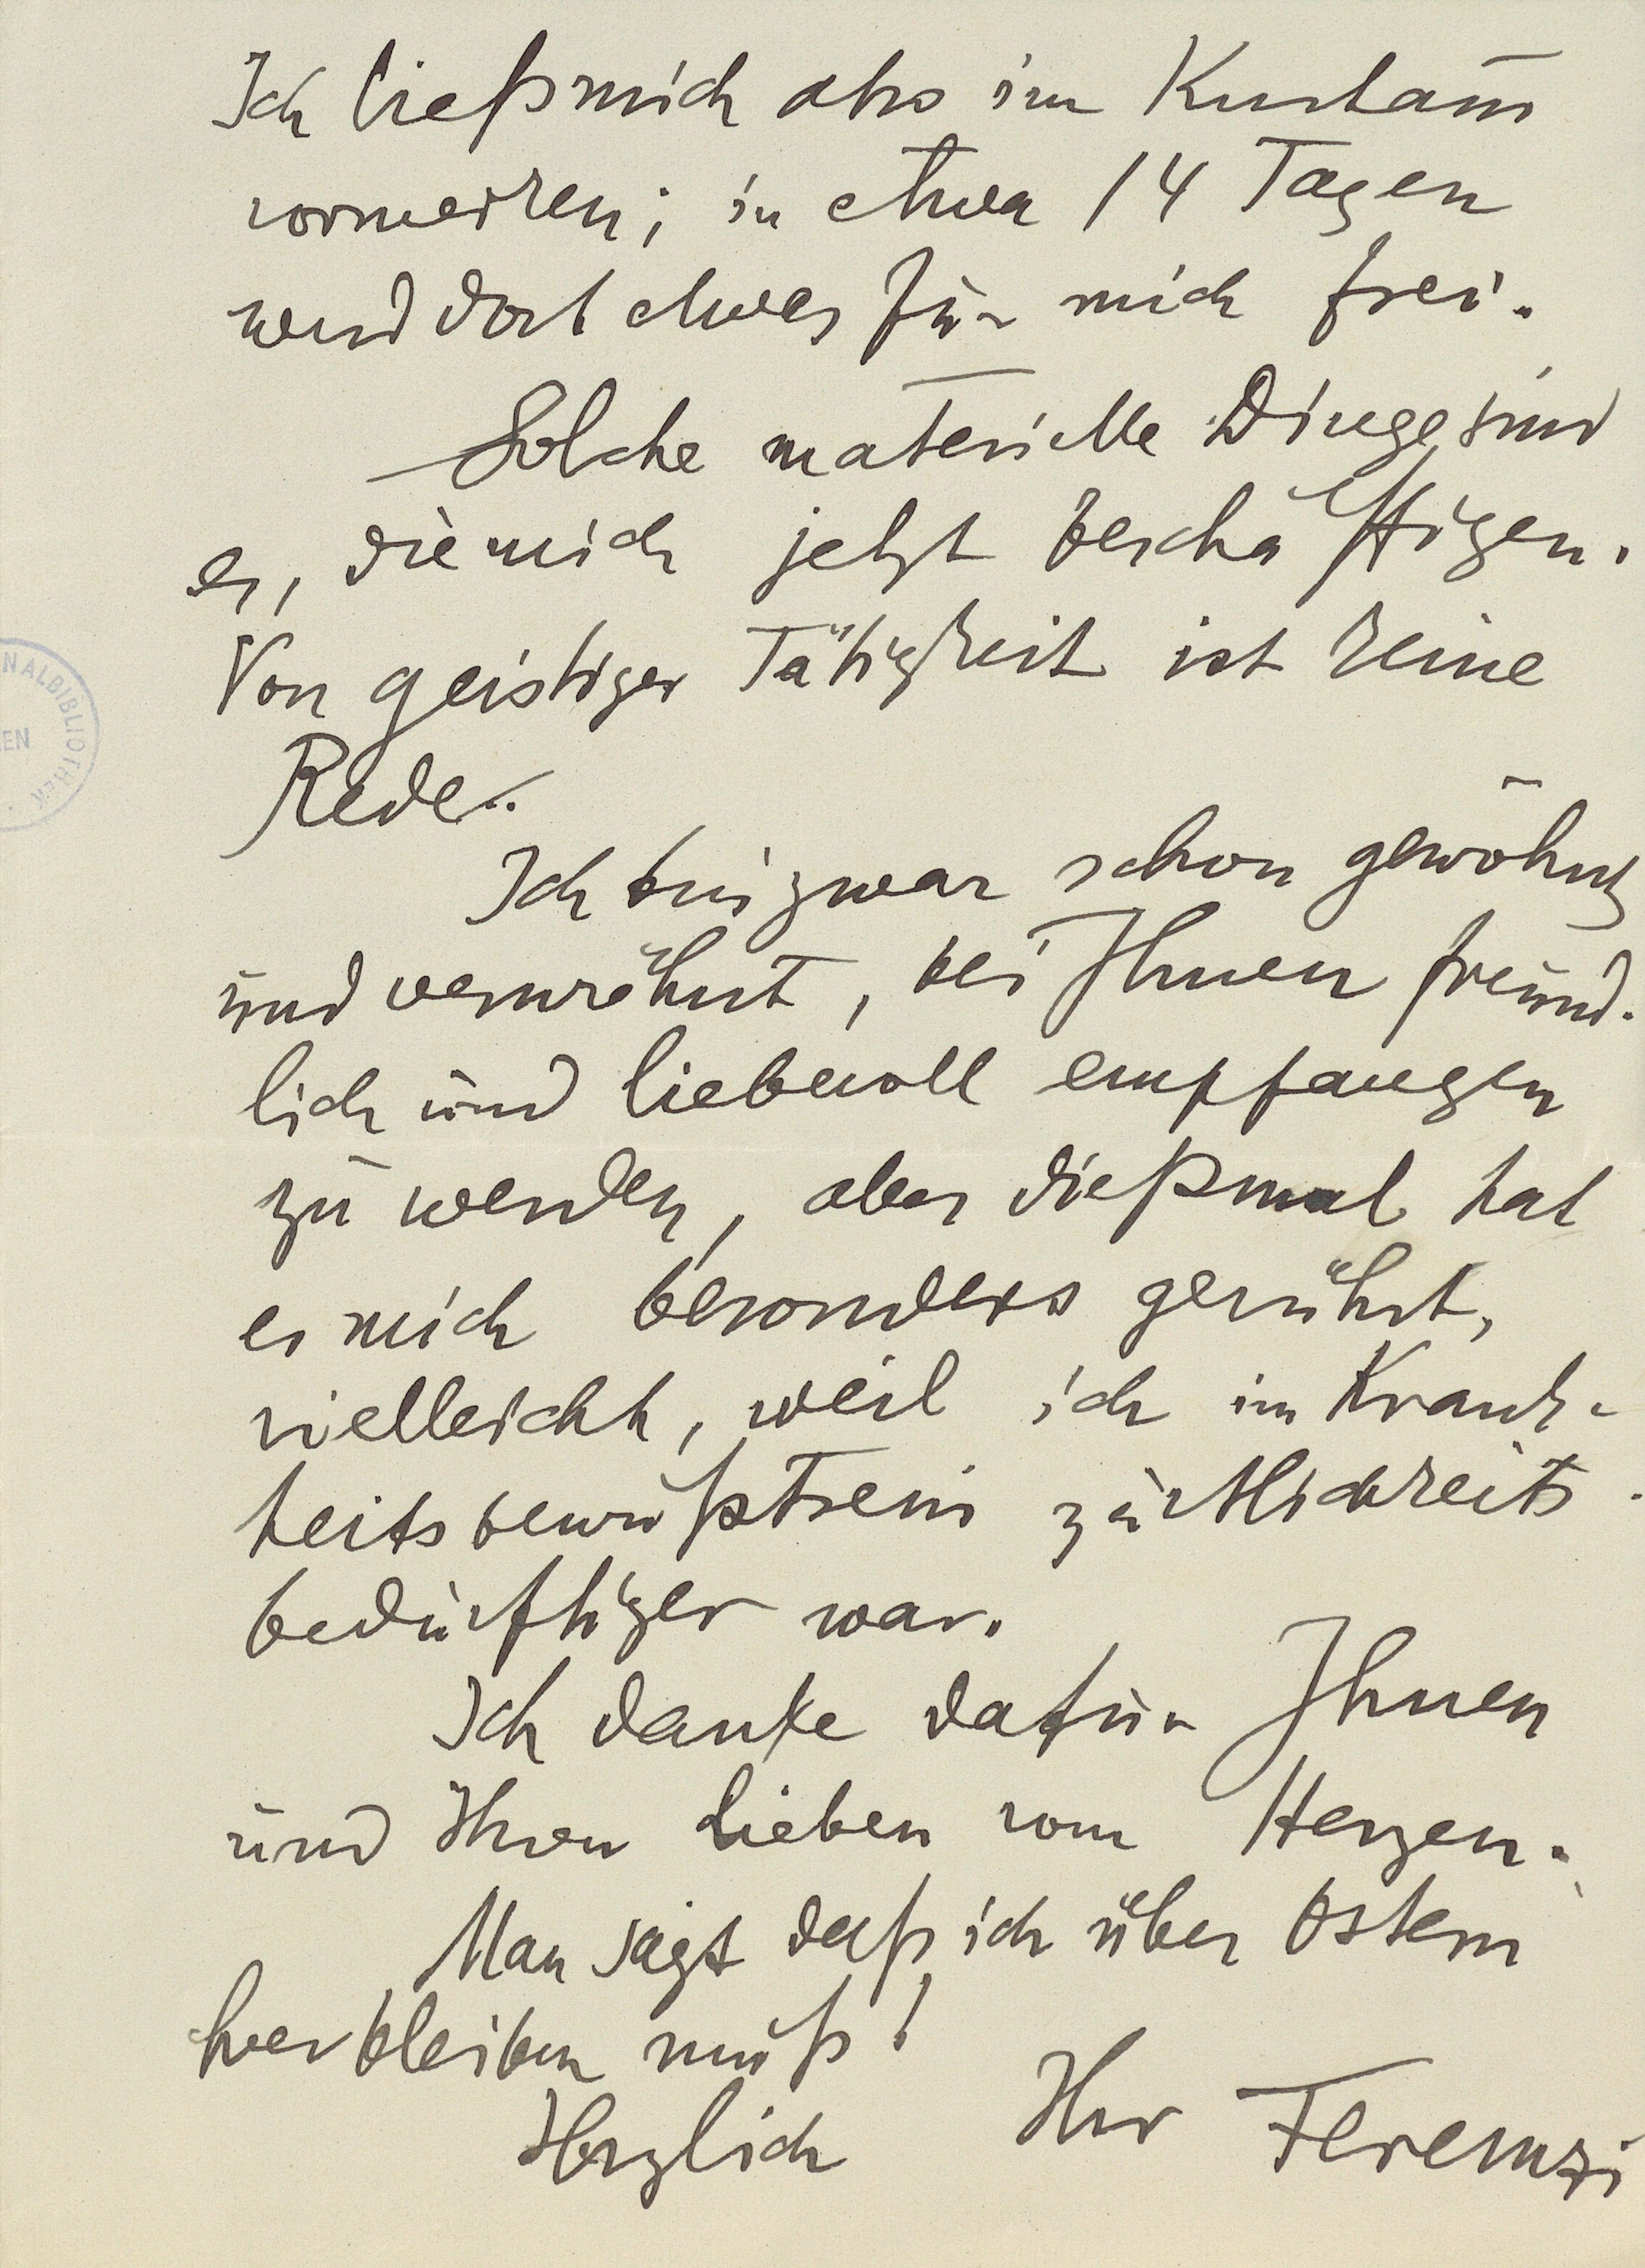 Ich ließ mich also im Kurhaus
vormerken; in etwa 14 Tagen
wird dort etwas für mich frei.
Solche materielle Dinge sind
es, die mich jetzt beschäftigen.
Von geistiger Tätigkeit ist keine
Rede.
Ich bin zwar schon gewöhnt
und verwöhnt, bei Ihnen freund-
lich und liebevoll empfangen
zu werden, aber dießmal hat
es mich besonders gerührt,
vielleicht, weil ich im Krank-
heitsbewußtsein zärtlichkeits-
bedürftiger war.
Ich danke dafür Ihnen
und Ihren Lieben vom Herzen.
Man sagt daß ich über Ostern
hierbleiben muß!
Herzlich Ihr Ferenczi
NALBIBLIOTHEK
EN